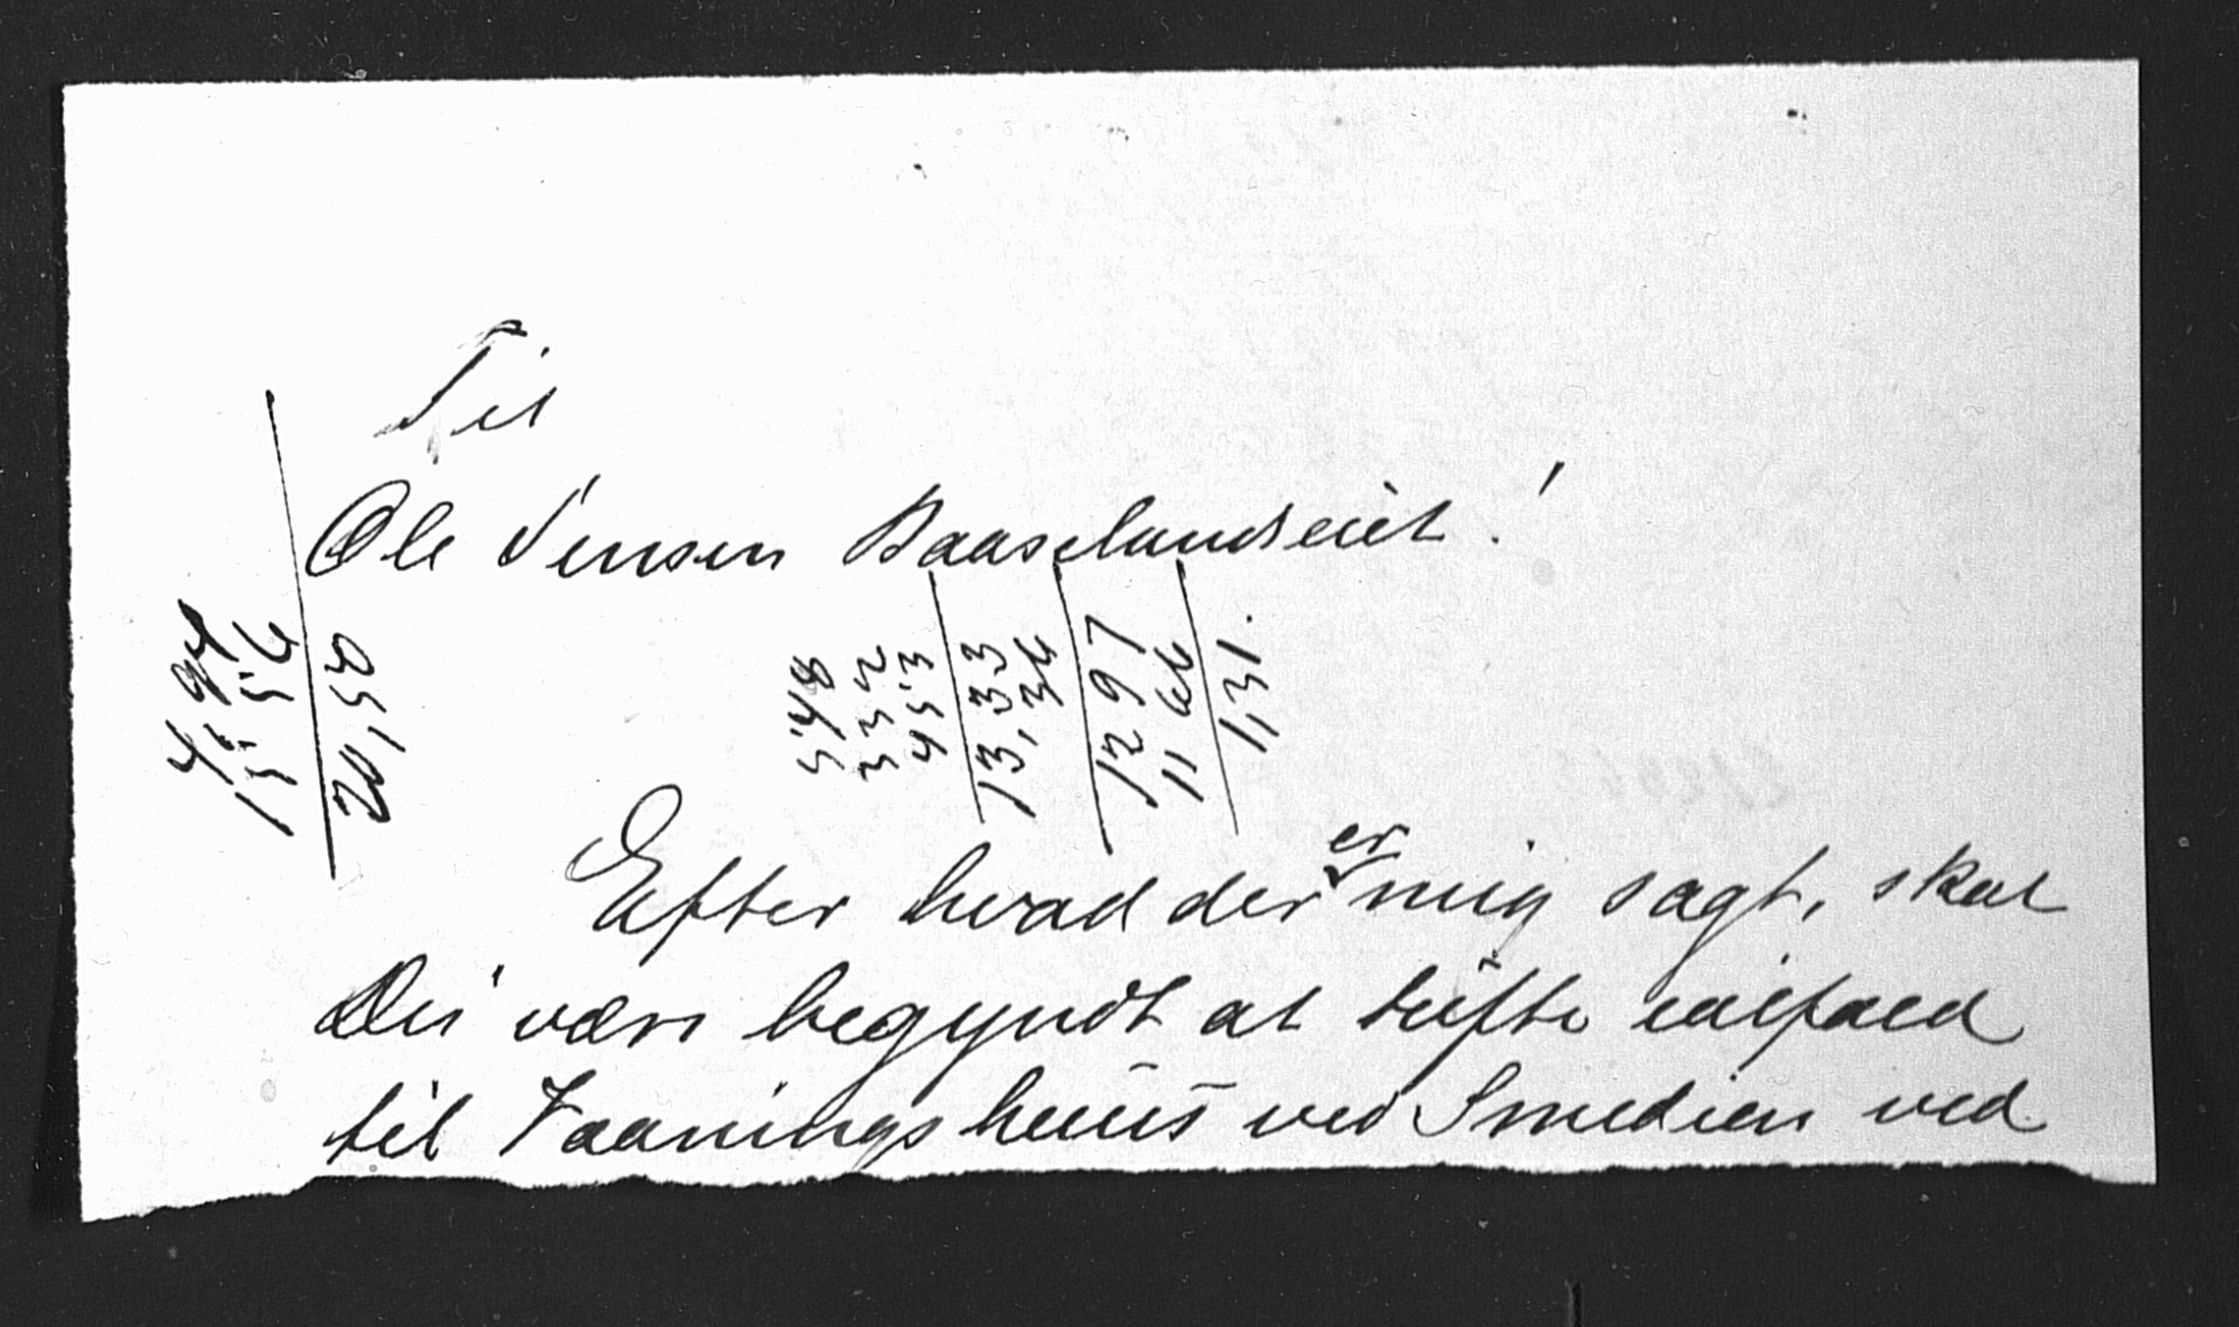 Til
Ole Jensen Baaselandseiet!
4,94
15,56
20,50
548
332
453
13,33
13,36
12 97
11 66
1,31.
Efter hvad der er mig sagt, skal
De være begyndt at tufte ialfald
til Vaaningshuus ved Smedien ved